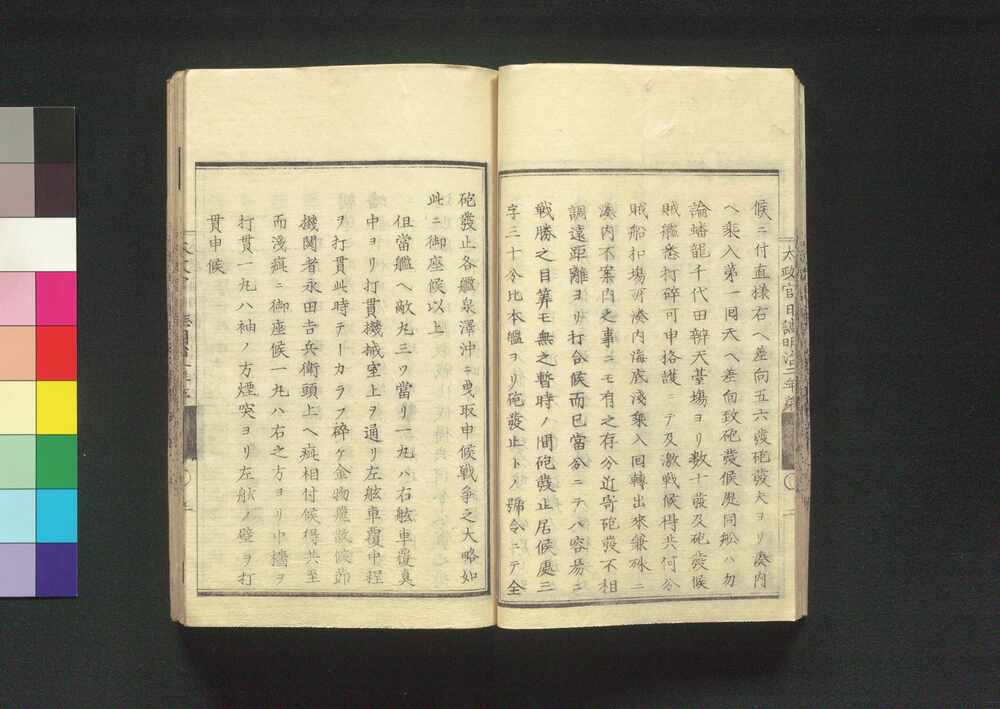 候ニ付直様右ヘ差向五六發砲發夫ヨリ湊内
ヘ乘入第一回天ヘ差向致砲發候處同船ハ勿
論蟠龍千代田辨天臺場ヨリ数十發及砲發候
賊艦悉打碎可申挌護ニテ及激戦候得共何分
賊船扣場所湊内海底淺乘入回轉出來兼殊ニ
湊内不案内之事ニモ有之存分近寄砲發不相
調遠距離ヨリ打合候而已當分ニテハ容昜ニ
戦勝之目算モ無之暫時ノ間砲發止居候處三
字三十分比本艦ヨリ砲發止トノ號令ニテ全
太政官日誌明治二年
砲發止各艦泉澤沖ニ曳取申候戦爭之大略如
此ニ御座候以上
但當艦ヘ敵丸三ツ當リ一丸ハ右舷車覆眞
中ヨリ打貫機械室上ヲ通リ左舷車覆中程
ヲ打貫此時テーカラフ碎ケ金物飛散候節
機関者永田吉兵衛頭上ヘ疵相付候得共至
而淺疵ニ御座候一丸ハ右之方ヨリ中檣ヲ
打貫一丸ハ袖ノ方煙突ヨリ左舷ノ壁ヲ打
貫申候